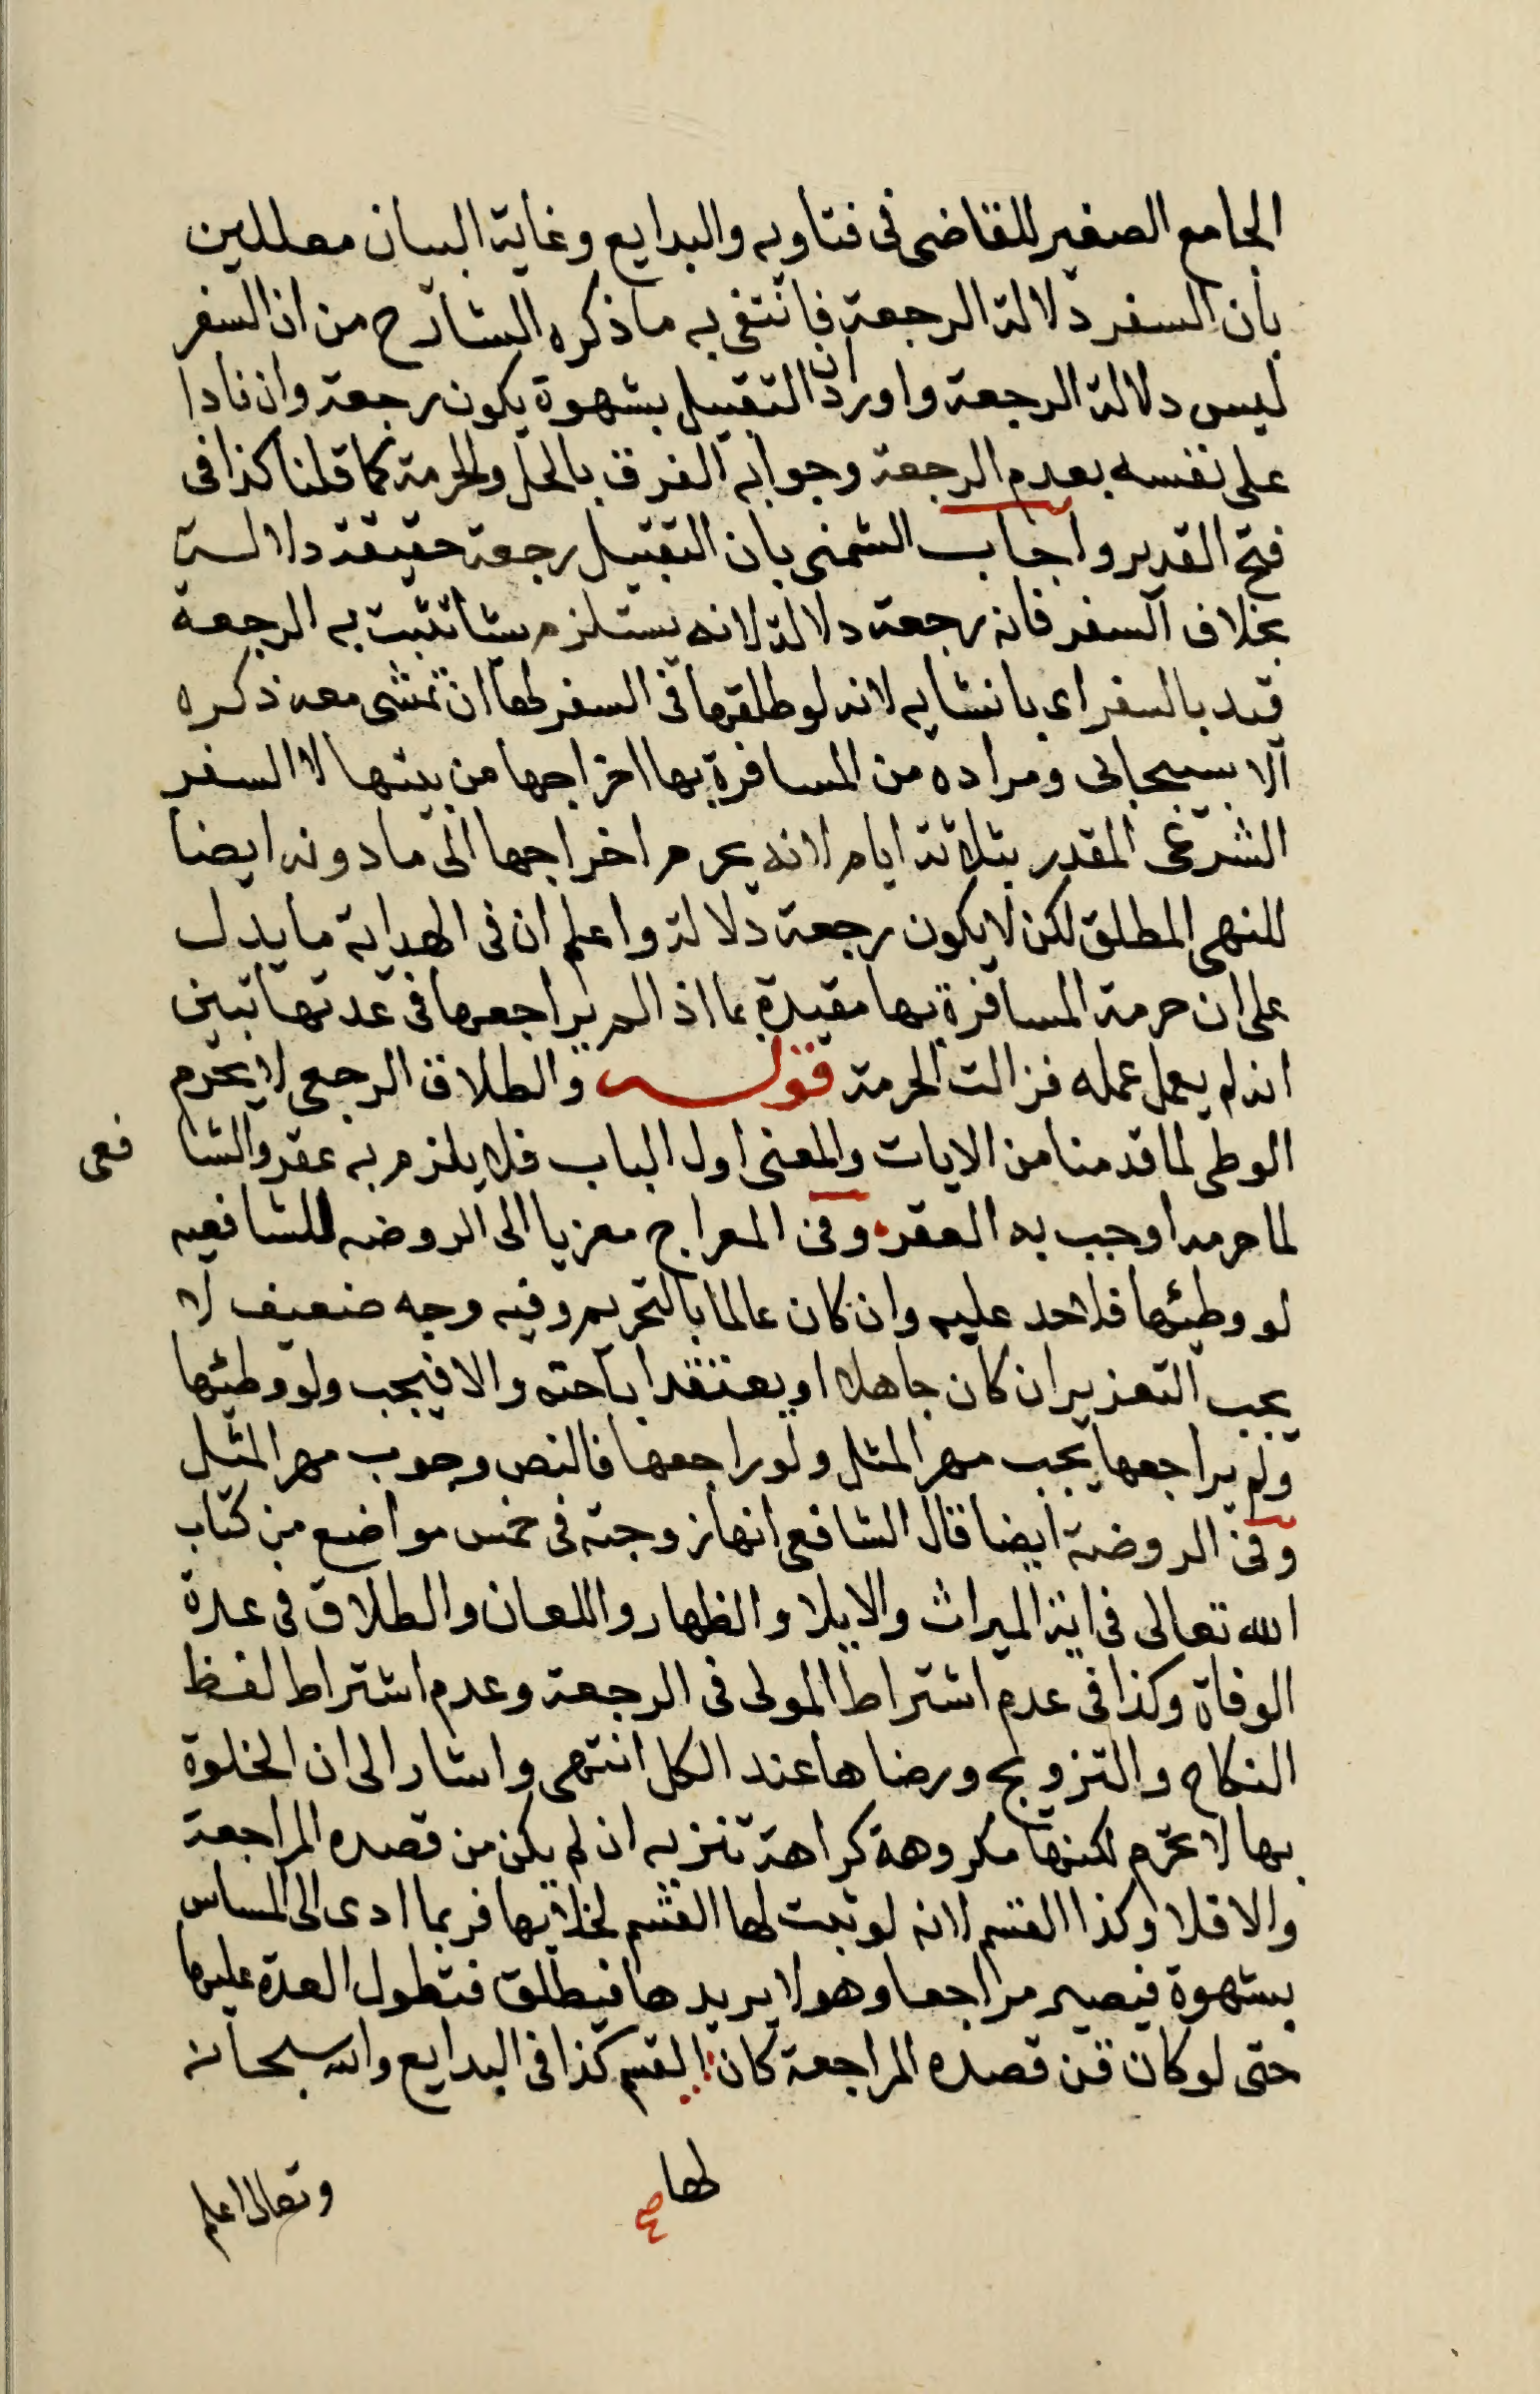 الجامع الصغير للقاضى فى فتاويه والبدايع وغاية البيان معللين
بأن السفر دلالة الرجعة فانتفى به ما ذكره الشارح من ان السفر
ليس دلالة الرجعة واورد ان التقبيل بشهوة يكون رجعة وان نادا
على نفسه بعدم الرجعة وجوابه الفرق بالحل والحرمة كما قلنا كذا فى
فتح القدير واجاب الشمنى بان التقبيل رجعة حقيقة دلالة
بخلاف السفر فانه رجعة دلالة لانه يستلزم شا تثبت به الرجعة
قيد بالسفر اى بانشايه لانه لو طلقها فى السفر لها ان تمشى معه ذكره
الاسبيجابى ومراده من المسافرة بها اخراجها من بيتها لا السفر
الشرعى المقدر بثلاثة ايام لانه يحرم اخراجها الى ما دونه ايضا
للنهى المطلق لكن لا يكون رجعة دلالة واعلم ان فى الهداية ما يدل
على ان حرمة المسافرة بها مقيدة بما اذا لم يراجعها فى عدتها تبين
انه لم يعمل عمله فزالت الحرمة قوله والطلاق الرجعى لا يحرم
الوطى لما قدمنا من الايات والمعنى اول الباب فلا يلزم به عقر والشا فعى
لما حرمه اوجب به العقر وفى المعراج معزيا الى الروضه للشافعيه
لو وطئها فلا حد عليه وان كان عالما بالتحريم وفيه وجه ضعيف لا
يجب التعزير ان كان جاهلا او يعتقد اباحته والا فيجب ولو وطئها
ولم يراجعها يجب مهر المثل ولو راجعها فالنص وجوب مهر المثل
وفى الروضة ايضا قال الشافعى انها زوجته فى خمس مواضع من كتاب
الله تعالى فى اية الميراث والايلا والظهار واللعان والطلاق فى عدة
الوفاة وكذا فى عدم اشتراط المولى فى الرجعة وعدم اشتراط لفظ
النكاح والتزويج ورضاها عند الكل انتهى واشار الى ان الخلوة
بها لا تحرم لكنها مكروهة كراهة تنزيه ان لم يكن من قصده المراجعة
والا فلا وكذا القسم لانه لو ثبت لها القسم لخلا بها فربما ادى الى المساس
بشهوة فيصير مراجعا وهو لا يريدها فيطلق فتطول العدة عليها
حتى لو كان من قصده المراجعة كان القسم كذا فى البدايع والله سبحانه
لها صح
وتعالى اعلم